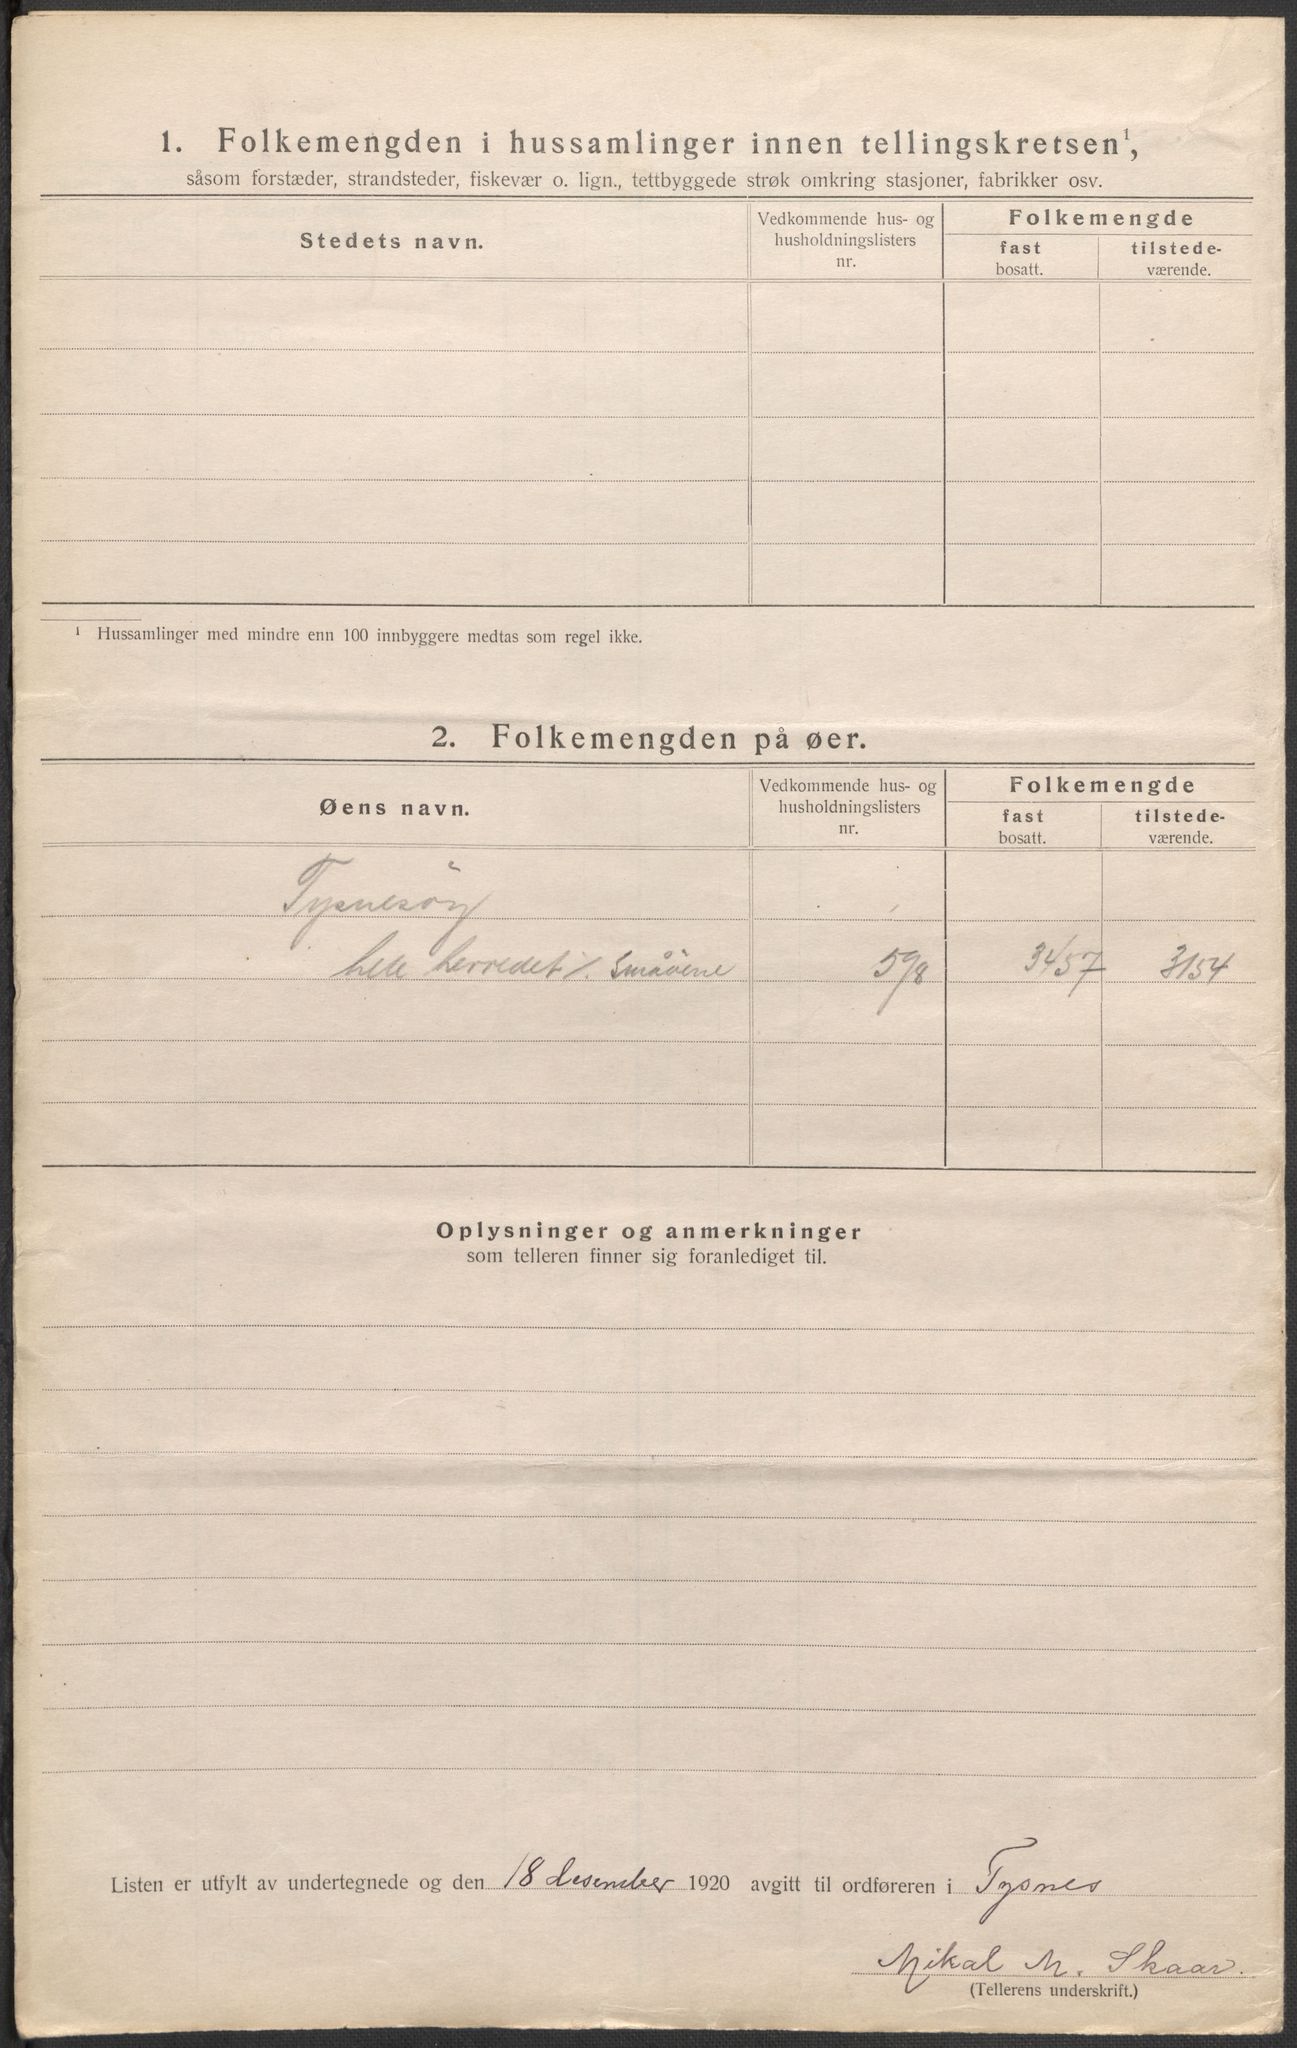 1. Folkemengden i hussamlinger innen tellingskretsen¹,
såsom forstæder, strandsteder, fiskevær o. lign., tettbyggede strøk omkring stasjoner, fabrikker osv.
Stedets navn.
Vedkommende hus- og
husholdningslisters
nr.
Folkemengde
fast
bosatt.
tilstede-
værende.
¹ Hussamlinger med mindre enn 100 innbyggere medtas som regel ikke.
2. Folkemengden på øer.
Øens navn.
Vedkommende hus- og
husholdningslisters
nr.
Folkemengde
fast
bosatt.
tilstede-
værende.
Tysnesöy
hele herredet ⁒ Småöene 598 3457 3154
Oplysninger og anmerkninger
som telleren finner sig foranlediget til.
Listen er utfylt av undertegnede og den 18 desember 1920 avgitt til ordføreren i Tysnes
Mikal M. Skaar.
(Tellerens underskrift.)